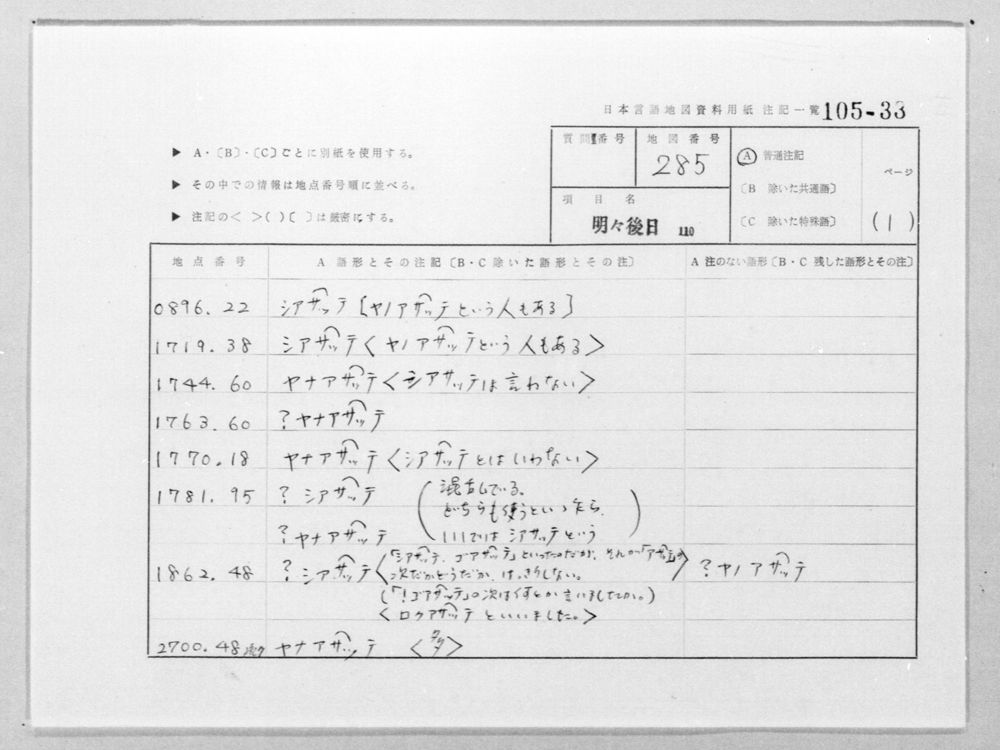 日本言語地図資料用紙 注記一覧 105-33
▶ A・〔B〕・〔C〕ごとに別紙を使用する。
▶ その中での情報は地点番号順に並べる。
▶ 注記の< >( )〔 〕は厳密にする。
質問番号
地図番号
285
項目名
明々後日 110
A 普通注記
〔B 除いた共通語〕
〔C 除いた特殊語〕
ページ
(1)
地点番号 A 語形とその注記〔B・C除いた語形とその注〕 A 注のない語形〔B・C 残した語形とその注〕
0896.22 シアサッテ〔ヤノアサッテという人もある〕
1719.38 シアサッテ<ヤノアサッテという人もある>
1744.60 ヤナアサッテ<シアサッテは言わない>
1763.60 ?ヤナアサッテ
1770.18 ヤナアサッテ<シアサッテとはいわない>
1781.95 ?シアサッテ (混乱している。
どちらも使うといったら、
?ヤナアサッテ いいではシアサッテという)
1862.48 ?シアサッテ<「シアサッテ、ゴアサッテ」といったのだが、それが「アサッテ」の
次だかどうだか、はっきりしない。> ?ヤノアサッテ
(「!ゴアサッテ」の次は何とか言いましたか。)
<ロクアサッテといいました。>
2700.48 ヤナアサッテ <多>